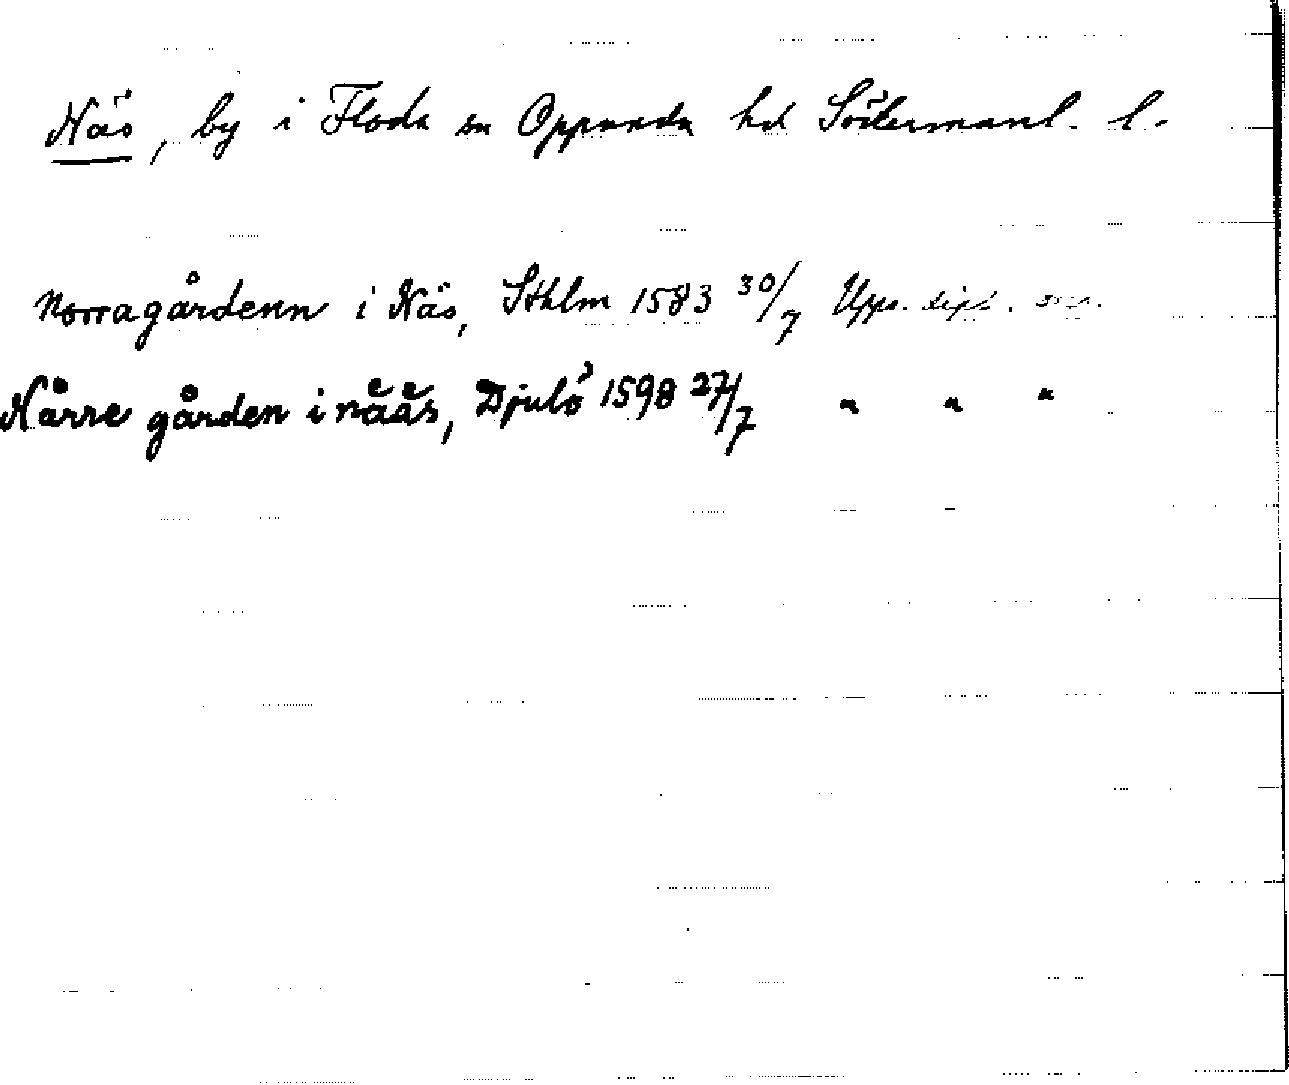 Näs, by i Floda sn Oppunda hd Södermanl. l.
Norragårdenn i Näs, Sthlm 1583 30/7 Upps. dipl. sml.
Nårre gården i nåås, Djulö 1598 27/7 " " "